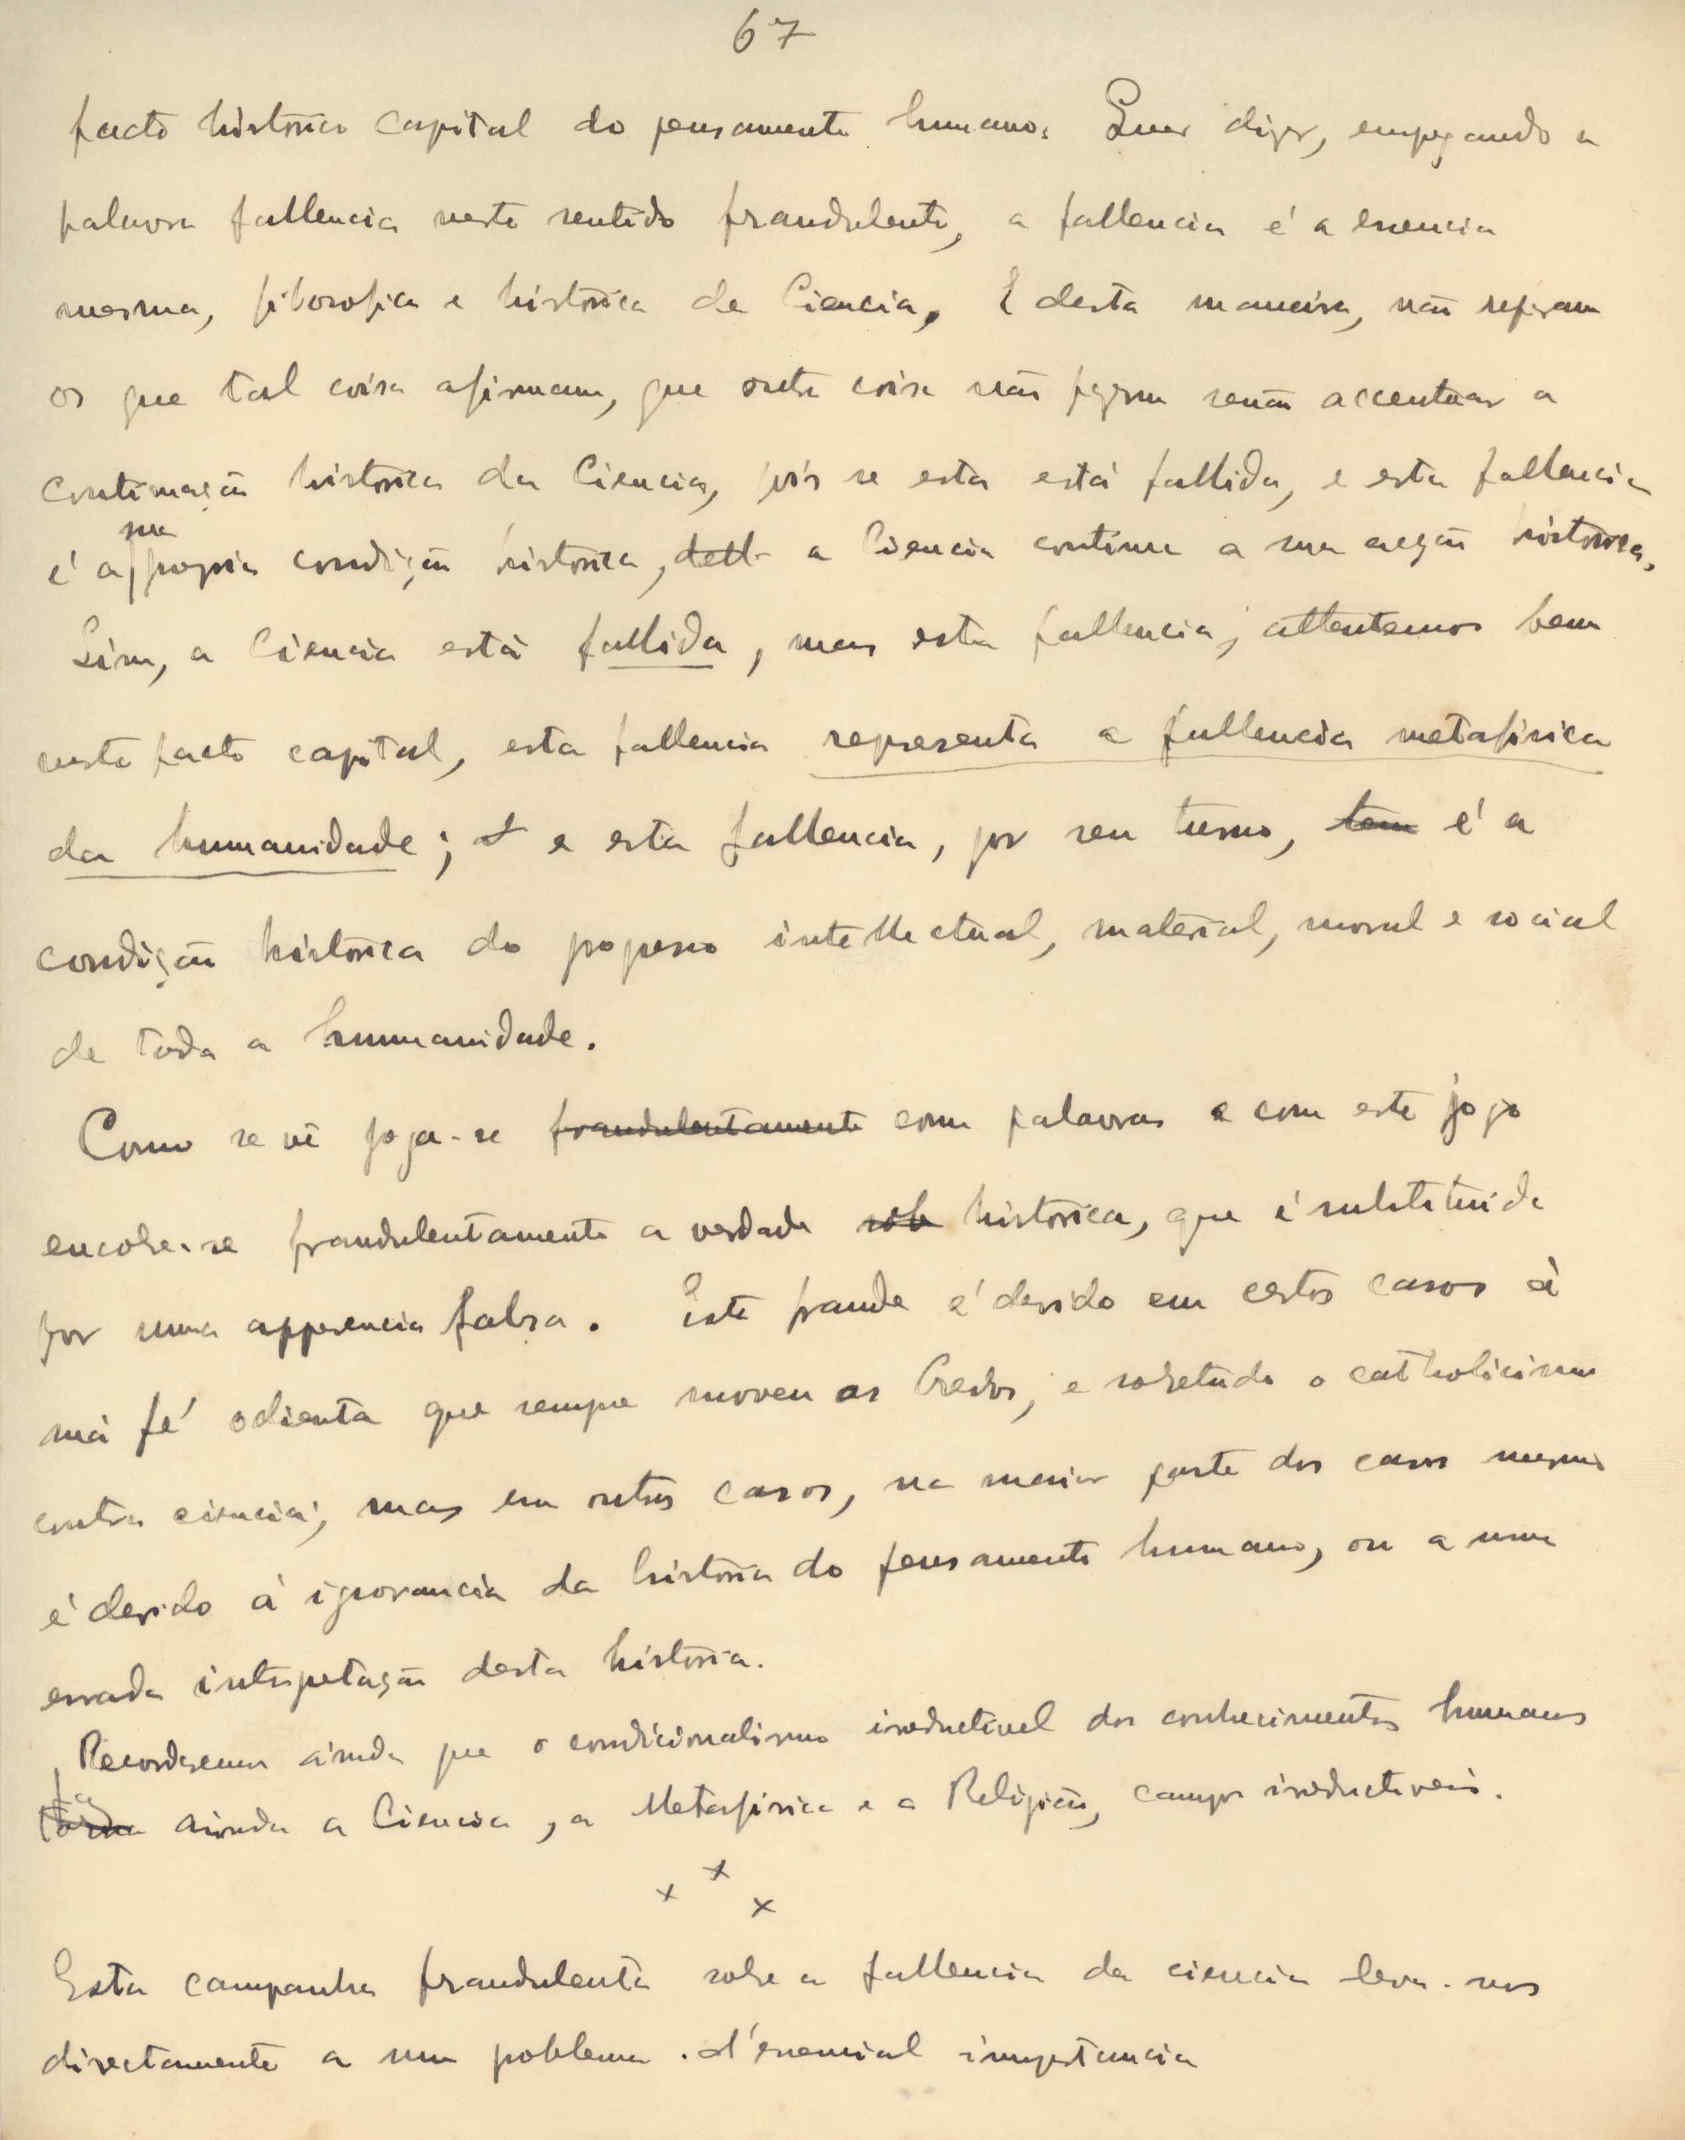 67
facto historico capital do pensamento humano. Quer dizer, empregando a
palavra fallencia neste sentido fraudulento, a fallencia é a essencia
mesma, filosofica e historica da Ciencia. E desta maneira, não
os que tal coisa afirmam, que outra coisa não fazem senão accentuar a
continuação historica da Ciencia, pois se esta está fallida, e esta fallencia
é a sua propria condição historica, a Ciencia continua a sua acção historica.
Sim, a Ciencia está fallida, mas esta fallencia, attentemos bem
neste facto capital, esta fallencia representa a fallencia metafisica
da humanidade; e esta fallencia, por seu turno, tem é a
condição historica do progresso intellectual, material, moral e social
de toda a humanidade.
Como se vê joga-se fraudulentamente com palavras e com este jogo
encobre-se fraudulentamente a verdade sob historica, que é substituida
por uma apperencia falsa. Esta fraude é devido em certos casos á
má fé odienta que sempre moveu os Credos, e sobretudo o catholicismo
contra ciencia; mas em outros casos, na maior parte dos casos mesmo
é devido á ignorancia da historia do pensamento humano, ou a uma
errada interpretação desta historia.
Recordaremos ainda que o condicionalismo irreductivel dos conhecimentos humanos
faz ainda a Ciencia, a Metafisica e a Religião, campos irreductiveis.
x x x
Esta campanha fraudulenta sobre a fallencia da ciencia leva-nos
directamente a um problema d'essencial importancia